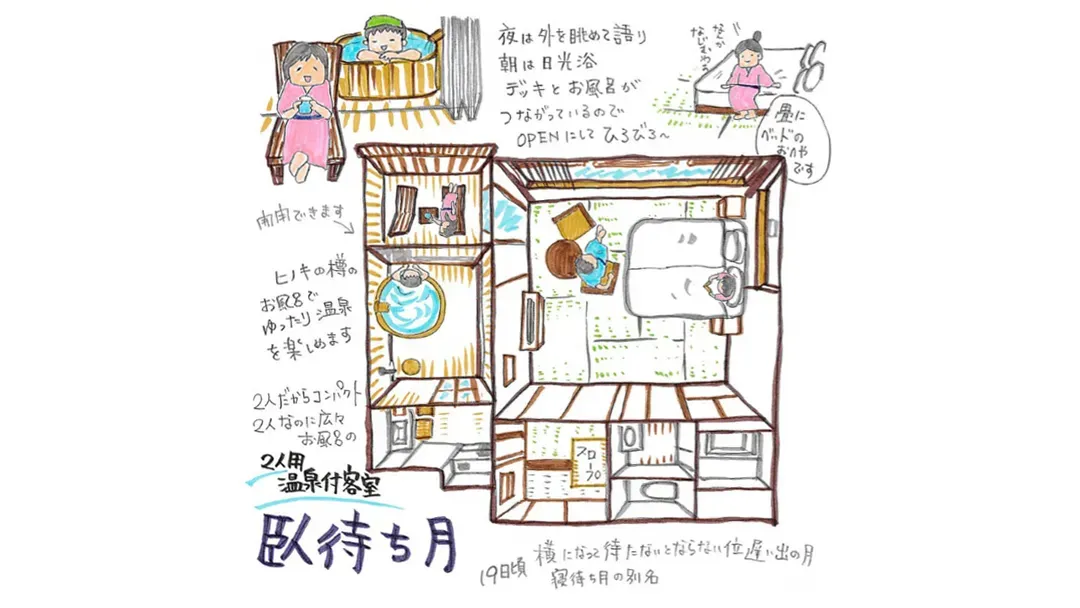 夜は外を眺めて語り
朝は日光浴
デッキとお風呂が
つながっているので
OPENにして ひろびろ〜
なんか
なじむわぁ
畳に
ベッドの
おへや
です
開閉できます
ヒノキの樽の
お風呂で
ゆったり温泉
を楽しめます
2人だからコンパクト
2人なのに広々
お風呂の
2人用
温泉付客室
臥待ち月
スロープ
19日頃 横になって待たないとならない位遅い出の月
寝待ち月の別名